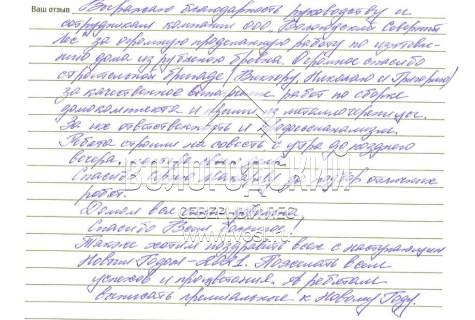 Ваш отзыв
Выражаю благодарность руководству и
сотрудникам компании ООО "Вологодский Северный
лес" за огромную проделанную работу по изготовле-
нию дома из рубленого бревна. Огромное спасибо
строительной бригаде (Виктору, Николаю и Григорию)
за качественное выполнение работ по сборке
домокомплекта и крыши из металлочерепицы.
За их ответственность и профессионализм.
Работа строили на совесть с утра до позднего
вечера,
Спасибо за отличных
работ.
Домом все довольны,
Спасибо Вам большое!
Также хотим поздравить всех с наступающим
Новым Годом - 2021. Пожелать всем
успехов и процветания. А ребятам
выписать премиальные к Новому Году.
ВОЛОГОДСКИЙ